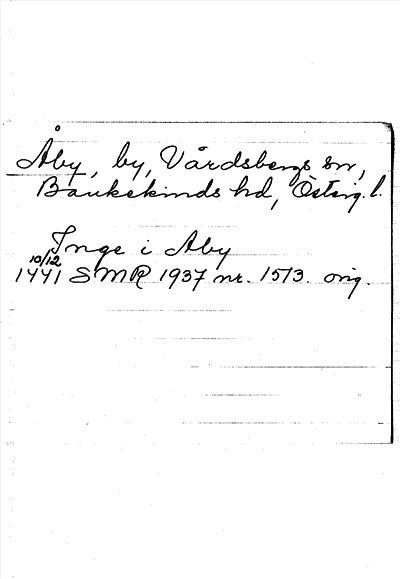 Åby, by, Vårdsbergs sn,
Bankekinds hd, Österg. l.
Inge i Aby
10/12
1441 SMR 1937 nr. 1513. orig.